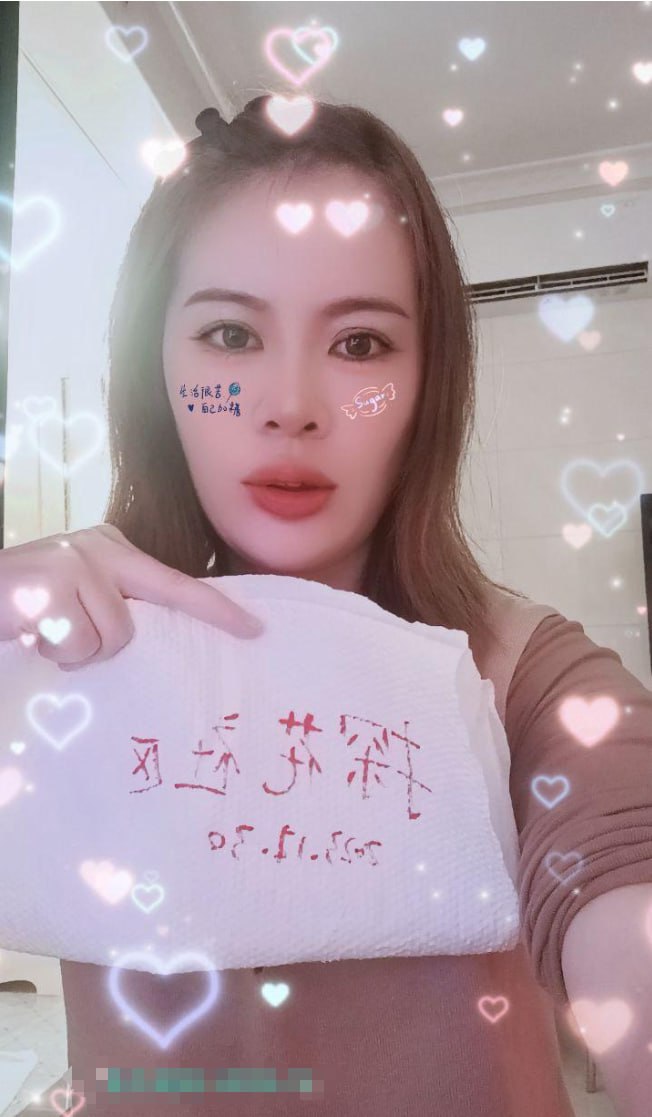 生活很苦
自己加糖
Sugar
探花社区
2023.12.30